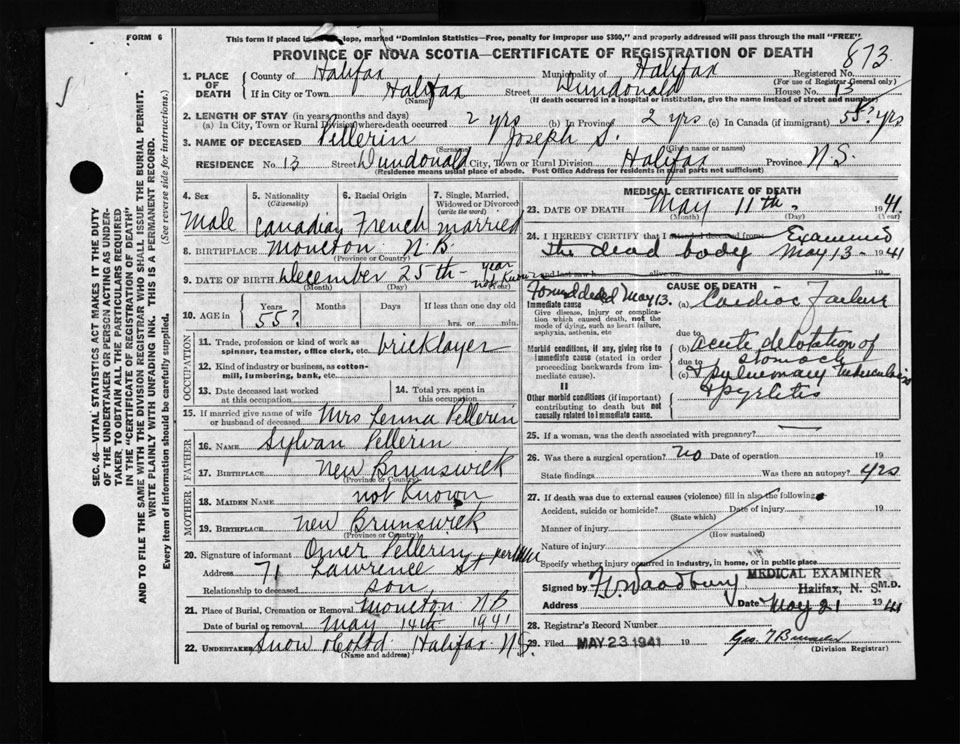 FORM 6
This form if placed in lope, marked "Dominion Statistics—Free, penalty for improper use $300," and properly addressed will pass through the mail "FREE"
PROVINCE OF NOVA SCOTIA—CERTIFICATE OF REGISTRATION OF DEATH
873
1. PLACE OF DEATH County of Halifax Municipality of Halifax Registered No.
(For use of Registrar General only)
If in City or Town Halifax Street Dundonald House No. 13
(Name) (If death occurred in a hospital or institution, give the name instead of street and number)
2. LENGTH OF STAY (in years, months and days)
(a) In City, Town or Rural Division where death occurred 2 yrs (b) In Province 2 yrs (c) In Canada (if immigrant) 55? yrs
3. NAME OF DECEASED Pellerin Joseph S.
(Surname) (Given name or names)
RESIDENCE No. 13 Street Dundonald City, Town or Rural Division Halifax Province N.S.
(Residence means usual place of abode. Post Office Address for residents in rural parts not sufficient)
4. Sex 5. Nationality (Citizenship) 6. Racial Origin 7. Single, Married, Widowed or Divorced (write the word)
Male Canadian French married
8. BIRTHPLACE Moncton N.B.
(Province or Country)
9. DATE OF BIRTH December 25th year not known
(Month) (Day) (Year)
10. AGE Years Months Days If less than one day old
55? hrs. or min.
OCCUPATION
11. Trade, profession or kind of work as spinner, teamster, office clerk, etc. bricklayer
12. Kind of industry or business, as cotton-mill, lumbering, bank, etc.
13. Date deceased last worked at this occupation
14. Total yrs. spent in this occupation
15. If married give name of wife or husband of deceased Mrs Lenna Pellerin
FATHER
16. NAME Sylvan Pellerin
17. BIRTHPLACE New Brunswick
(Province or Country)
MOTHER
18. MAIDEN NAME not known
19. BIRTHPLACE New Brunswick
(Province or Country)
20. Signature of informant Omer Pellerin
Address 71 Lawrence St
Relationship to deceased son
21. Place of Burial, Cremation or Removal Moncton N.B
Date of burial or removal May 14th 1941
22. UNDERTAKER Snow & Co Ltd Halifax N.S.
(Name and address)
MEDICAL CERTIFICATE OF DEATH
23. DATE OF DEATH May 11th 1941
(Month) (Day) (Year)
24. I HEREBY CERTIFY that I attended deceased from Examined
the dead body May 13 - 1941
and last saw h alive on 19
Found dead May 13.
CAUSE OF DEATH
Immediate cause (a) Cardiac Failure
Give disease, injury or complication which caused death, not the mode of dying, such as heart failure, asphyxia, asthenia, etc
due to
Morbid conditions, if any, giving rise to immediate cause (stated in order proceeding backwards from immediate cause).
(b) acute dilatation of stomach
due to
(c) & pulmonary tuberculosis
& pyelitis
II
Other morbid conditions (if important) contributing to death but not causally related to immediate cause.
25. If a woman, was the death associated with pregnancy? —
26. Was there a surgical operation? no Date of operation 19
State findings Was there an autopsy? yes
27. If death was due to external causes (violence) fill in also the following:
Accident, suicide or homicide? Date of injury 19
(State which)
Manner of injury
(How sustained)
Nature of injury
Specify whether injury occurred in industry, in home, or in public place
Signed by Woodbury MEDICAL EXAMINER M.D.
Halifax, N. S.
Address Date May 21 1941
28. Registrar's Record Number
29. Filed MAY 23 1941 19
(Division Registrar)
SEC. 46—VITAL STATISTICS ACT MAKES IT THE DUTY
OF THE UNDERTAKER OR PERSON ACTING AS UNDER-
TAKER, TO OBTAIN ALL THE PARTICULARS REQUIRED
IN THE "CERTIFICATE OF REGISTRATION OF DEATH"
AND TO FILE THE SAME WITH THE DIVISION REGISTRAR WHO SHALL ISSUE THE BURIAL PERMIT.
WRITE PLAINLY WITH UNFADING INK. THIS IS A PERMANENT RECORD.
Every item of information should be carefully supplied. (See reverse side for instructions.)